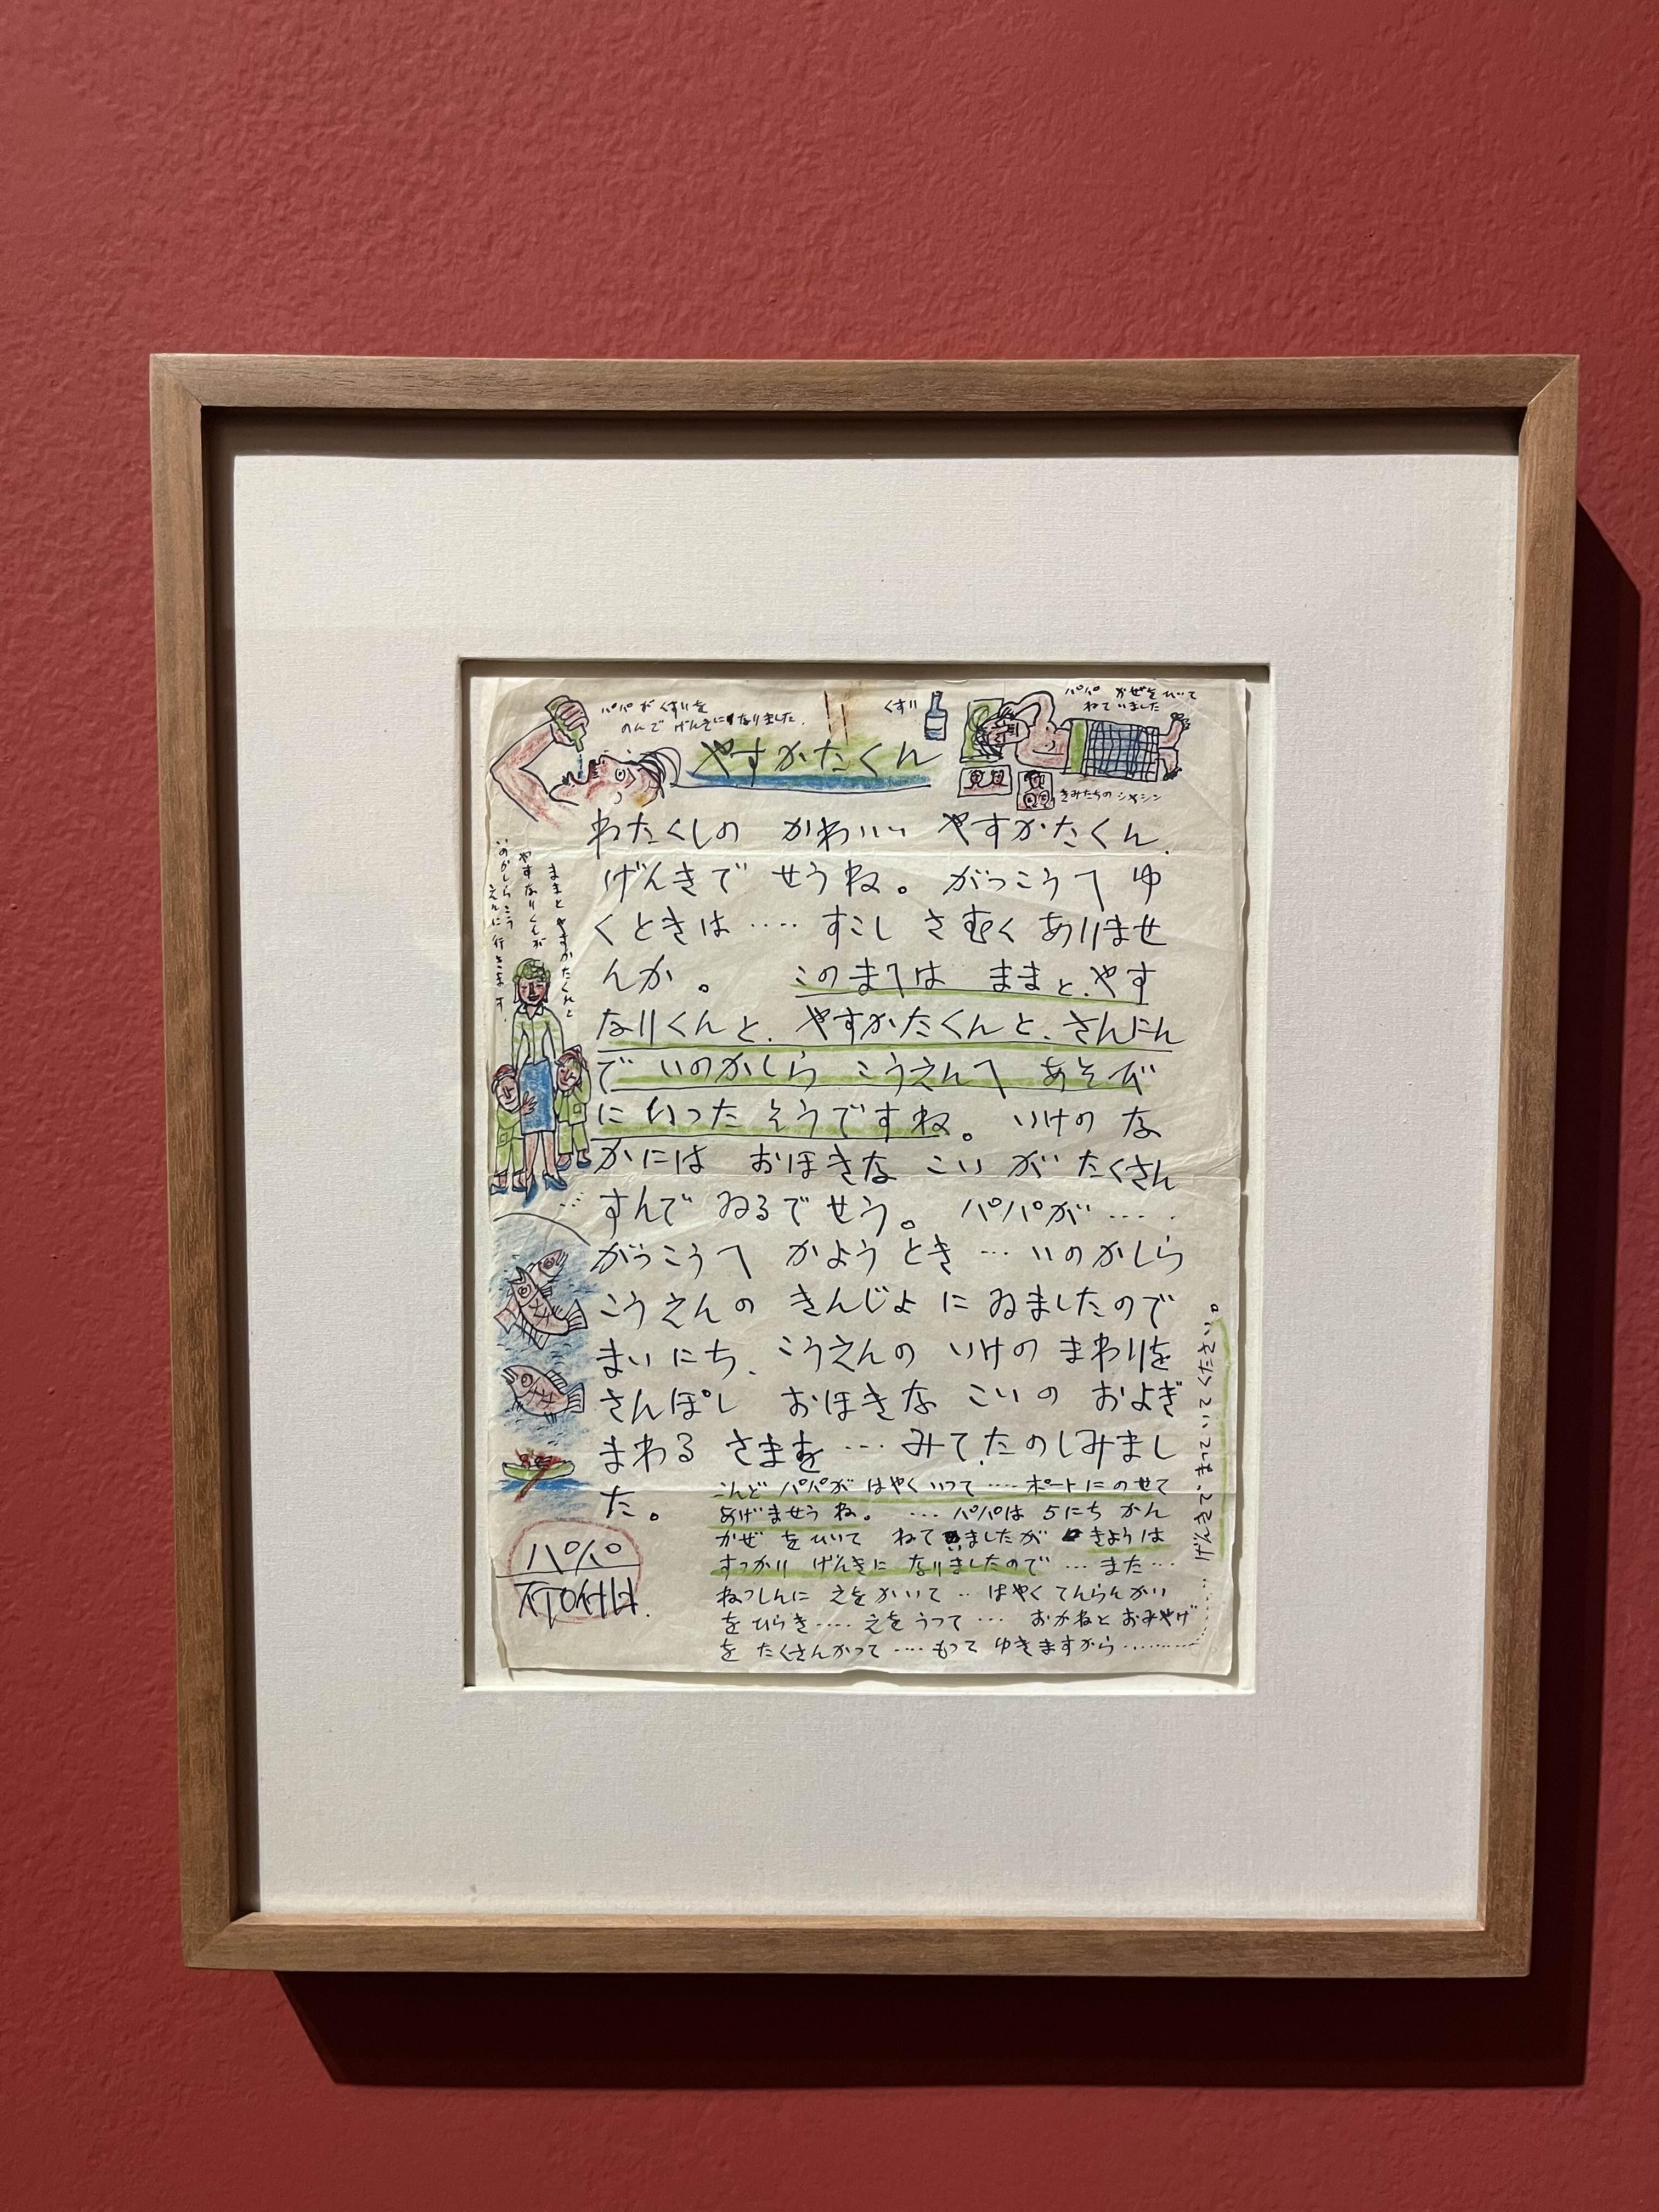 パパがくすりを
のんで げんきになりました.
くすり
パパ かぜをひいて
ねていました
やすかたくん
きみたちのシャシン
わたくしの かわいい やすかたくん.
げんきで せうね。 がっこうへ ゆ
くときは ‥‥ すこし さむく ありませ
んか。 このまへは ままと、やす
なりくんと、やすかたくんと、さんにん
で いのかしら こうえんへ あそび
に いった そうですね。 いけの な
かには おほきな こい が たくさん
すんで ゐるでせう。 パパが ‥‥
がっこうへ かよう とき ‥‥ いのかしら
こうえんの きんじよ に ゐましたので
まいにち、こうえんの いけの まわりを
さんぽし おほきな こいの およぎ
まわる さまを ‥‥ みて、たのしみまし
た。
こんど パパが はやく いって ‥‥ ボートに のせて
あげませうね。 ‥‥ パパは 5にちかん
かぜ をひいて ねていましたが きようは
すっかり げんきに なりましたので ‥‥ また ‥‥
ねっしんに えをかいて ‥‥ はやく てんらんかい
を ひらき ‥‥ えをうって ‥‥ おかねと おみやげ
を たくさんかって ‥‥ もって ゆきますから ‥‥‥‥
げんきで、まっていてください。
ままと やすかたくんと
やすなりくんが
いのかしらこう
えんに行きます.
パパ